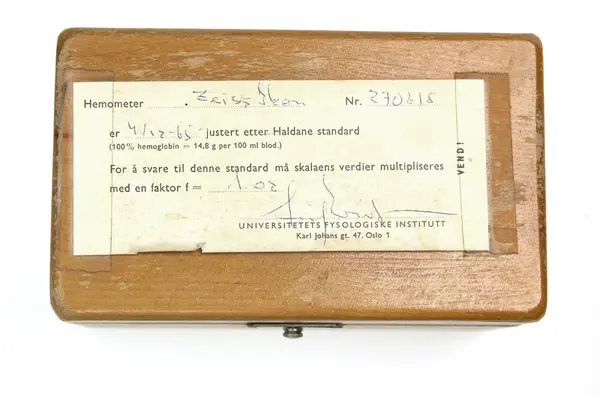 Hemometer Zeiss Ikon Nr. 270218
er 4/12-65 justert etter Haldane standard
(100% hemoglobin = 14,8 g per 100 ml blod.)
For å svare til denne standard må skalaens verdier multipliseres
med en faktor f = 1.02
UNIVERSITETETS FYSOLOGISKE INSTITUTT
Karl Johans gt. 47, Oslo 1
VEND!